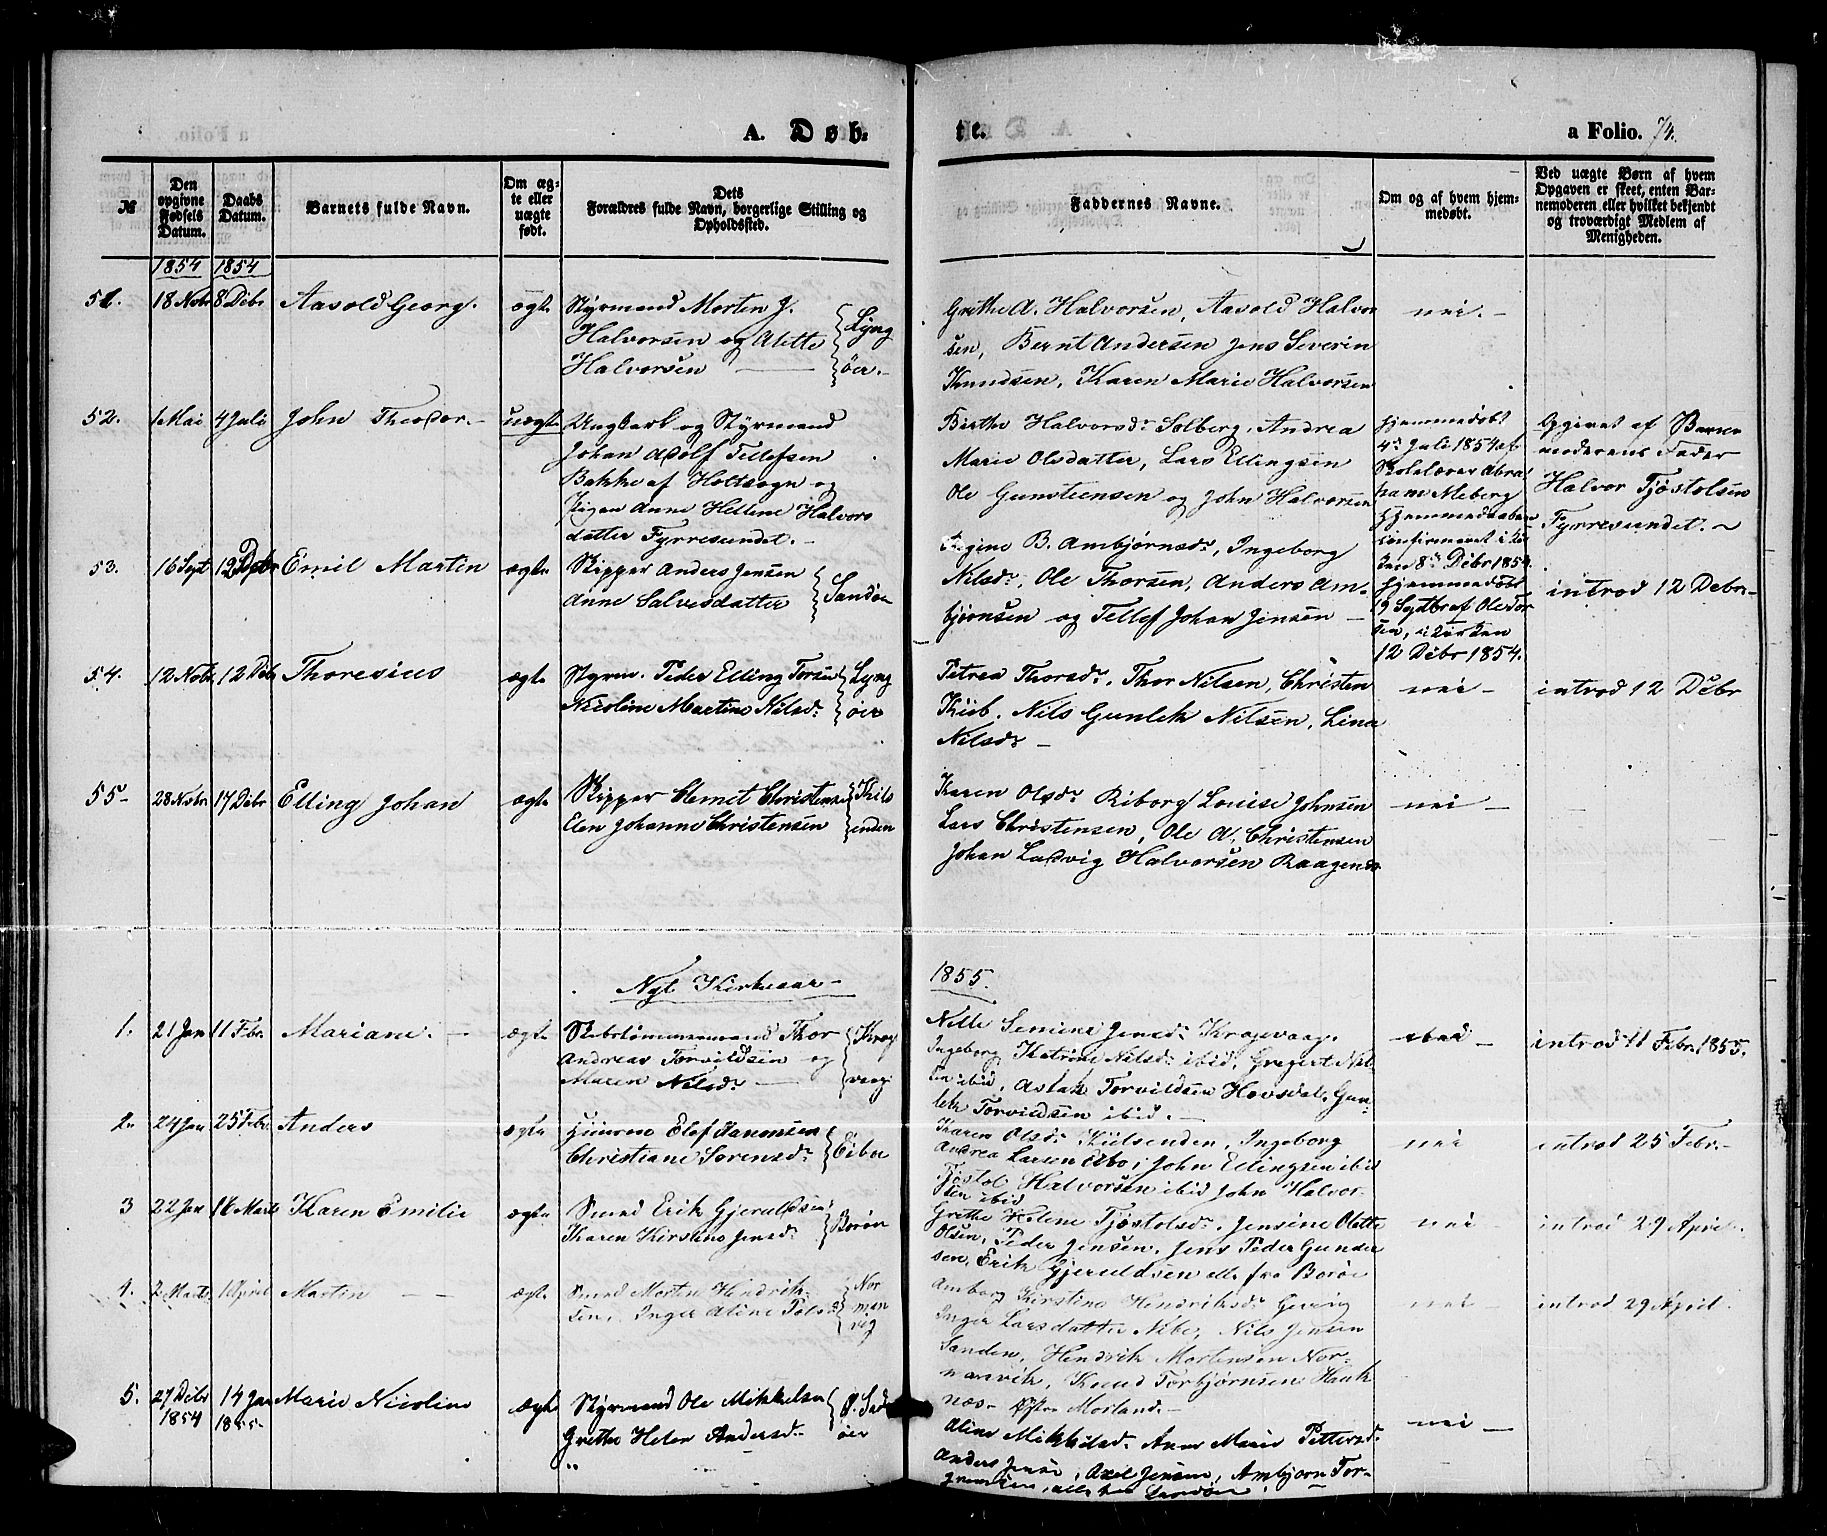 A. Døb-
te.
a Folio. 74.
№
Den opgivne Fødsels Datum.
Daabs Datum.
Barnets fulde Navn.
Om ægte eller uægte født.
Dets Forældres fulde Navn, borgerlige Stilling og Opholdssted.
Faddernes Navne.
Om og af hvem hjemmedøbt.
Ved uægte Børn af hvem Opgaven er skeet, enten Barnemoderen eller hvilket bekjendt og troværdigt Medlem af Menigheden.
1854 1854
51. 18 Nobr 8 Débr Aasold Georg. ægte
Styrmand Morten J.
Halvorsen og Alette
Halvorsen
Lyng
öer.
Grethe A. Halvorsen, Aasold Halvor
sen, Bernt Andersen Jens Severin
Knudsen, Karen Marie Halvorsen
nei.
52. 1 Mai 4 Juli John Theodor. uægte
Ungkarl og Styrmand
Johan Adolf Tellefsen
Bakke af Holtsogn og
Pigen Anne Hellene Halvors
datter Fyrresundet.
Birthe Halvorsdr Solberg, Andrea
Marie Olsdatter, Lars Ellingsen
Ole Gunsteensen og John Halvorsen
Hjemmedøbt
4de Juli 1854 af
Skolelærer Abra
ham Meberg
Hjemmedaaben
confirmeret i Kir
ken 8de Débr 1854.
Opgivet af Barne
moderens Fader
Halvor Tjöstolsen
Fyrresundet.
53. 16 Sept 12 Debr Emil Martin ægte
Skipper Anders Jensen
Anne Salvesdatter
Sandøen
Regine B. Ambjörnsdr, Ingeborg
Nilsdr, Ole Thorsen, Anders Am-
bjørnsen og Tellef Johan Jensen
Hjemmedøbt
19 Septbr af Ole Tor
sen, i Kirken
12 Débr 1854.
introd 12 Debr
54. 12 Nobr 12 Débr Thoresius ægte
Styrm. Peder Elling Torsen
Nicoline Martine Nilsdr
Lyng
öer
Petrea Thorsdr. Thor Nilsen, Christen
Kiib. Nils Gunlek Nilsen, Lina
Nilsdr
nei
introd 12 Débr
55 28 Nobr 17 Débr Elling Johan ægte
Skipper Clemet Christensen
Elen Johanne Christensen
Kils
enden
Karen Olsdr Riborg Louise Johnsen
Lars Christensen, Ole A. Christensen
Johan Ludvig Halvorsen Raagenæs
nei
Nyt Kirkeaar
1855.
1. 21 Jan 11 Febr Mariane. ægte
Skibstömmermand Thor
Andreas Torvildsen og
Maren Nilsdr
Krog
vaag
Nille Jensdr Krogevaag.
Ingeborg Katrine Nilsdr ibid, Gregert Nil
sen ibid, Aslak Torvildsen Hovsdal, Gun-
lek Torvildsen ibid.
introd 11 Febr. 1855.
2. 24 Jan 25 Febr. Anders ægte
Elef
Christiane Sorensdr
Eiboe
Karen Olsdr Kielsenden, Ingeborg
Andrea Larsen Eibo, John Ellingsen ibid
Tjöstol Halvorsen ibid John Halvor-
sen ibid
nei
introd 25 Febr.
3 22 Jan Marts Karen Emilie ægte
Smed Erik Gjeruldsen
Karen Kirstine Jensd.
Borøen
Grethe Helene Tjöstolsdr. Jensine Olette
Olsen, Peder Jensen. Jens Peder Gunder
sen, Erik Gjeruldsen alle fra Boröe
nei
introd 29 April.
4. 2 Marts 1 April Martin ægte
Smed Morten Hendrik-
sen, Inger Aline Polsdr
Nor
man
vig
Amborg Kirstine Hendriksdr
Inger Larsdatter Nebe, Nils Jensen
Sanden, Hendrik Mortensen Nor-
mansvik, Knud Torbjörnsen Hauk
næs. Østre Morland.
nei
introd 29 April.
5. 27 Débr 1854 14 Jan 1855. Marie Nicoline ægte
Styrmand Ole Mikkelsen
Grethe Helen Andersd.
Ø. Sand
öer
Aline Mikkelsd. Anne Marie Pettersd.
Anders Jensen, Axel Jensen, Ambjørn Tor-
alle fra Sandöen.
nei